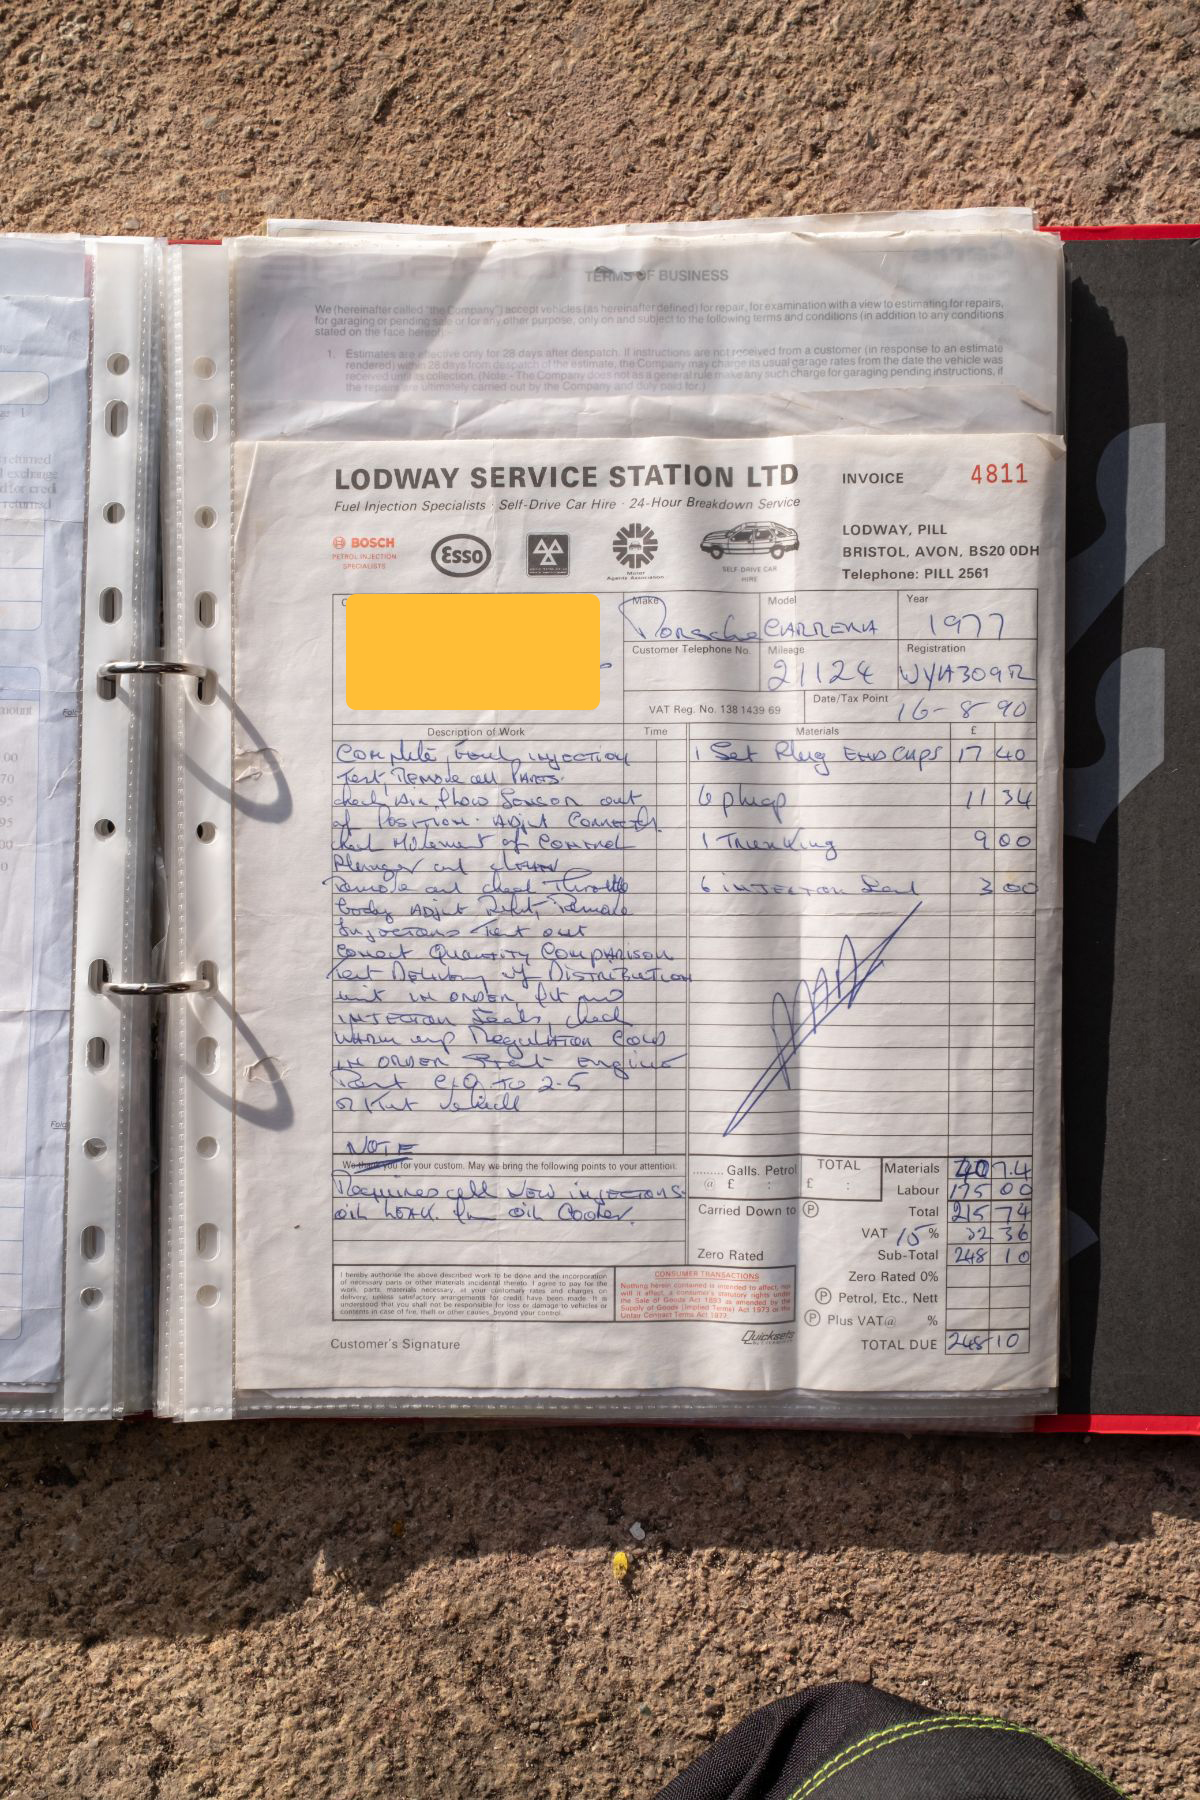 TERMS OF BUSINESS
We (hereinafter called "the Company") accept vehicles (as hereinafter defined) for repair, for examination with a view to estimating for repairs,
for garaging or pending sale or for any other purpose, only on and subject to the following terms and conditions (in addition to any conditions
stated on the face hereof):-
1. Estimates are effective only for 28 days after despatch. If instructions are not received from a customer (in response to an estimate
rendered) within 28 days from despatch of the estimate, the Company may charge its usual garage rates from the date the vehicle was
received until its collection. (Note:- The Company does not as a general rule make any such charge for garaging pending instructions, if
the repairs are ultimately carried out by the Company and duly paid for.)
LODWAY SERVICE STATION LTD
INVOICE 4811
Fuel Injection Specialists · Self-Drive Car Hire · 24-Hour Breakdown Service
BOSCH
PETROL INJECTION
SPECIALISTS
Esso
Motor
Agents Association
SELF-DRIVE CAR
HIRE
LODWAY, PILL
BRISTOL, AVON, BS20 0DH
Telephone: PILL 2561
Make Porsche
Model CARRERA
Year 1977
Customer Telephone No.
Mileage 21124
Registration WYH309R
VAT Reg. No. 138 1439 69
Date/Tax Point 16-8-90
Description of Work Time Materials £
Complete Fuel INJECTION
Test, Remove all PARTS.
check Air Flow Sensor out
of POSITION. ADJUST CORRECTLY.
check Movement of CONTROL
Plunger and clean
Remove and check Throttle
body ADJUST Remove
Injectors Test out
correct QUANTITY COMPARISON
Test Delivery of DISTRIBUTION
unit IN ORDER, fit
INJECTOR Seals, check
WARM up Regulation COLD
IN ORDER engine
C.O TO 2-5
vehicle
1 Set Plug END CAPS 17 40
6 plugs 11 34
1 Trunking 9 00
6 INJECTOR Seal 3 00
NOTE
We thank you for your custom. May we bring the following points to your attention:
Requires all NEW INJECTORS.
oil LEAK. oil Cooler.
......... Galls. Petrol
@ £ :
TOTAL
£ :
Carried Down to P
Zero Rated
Materials 40 7.4
Labour 175 00
Total 215 74
VAT 15 % 32 36
Sub-Total 248 10
Zero Rated 0%
P Petrol, Etc., Nett
P Plus VAT@ %
TOTAL DUE 248 10
I hereby authorise the above described work to be done and the incorporation
of necessary parts or other materials incidental thereto. I agree to pay for the
work, parts, materials necessary, at your customary rates and charges on
delivery, unless satisfactory arrangements for credit have been made. It is
understood that you shall not be responsible for loss or damage to vehicles or
contents in case of fire, theft or other causes, beyond your control.
CONSUMER TRANSACTIONS
Nothing herein contained is intended to affect, nor
will it affect, a consumer's statutory rights under
the Sale of Goods Act 1893 as amended by the
Supply of Goods (Implied Terms) Act 1973 or the
Unfair Contract Terms Act 1977.
Customer's Signature
Quicksets